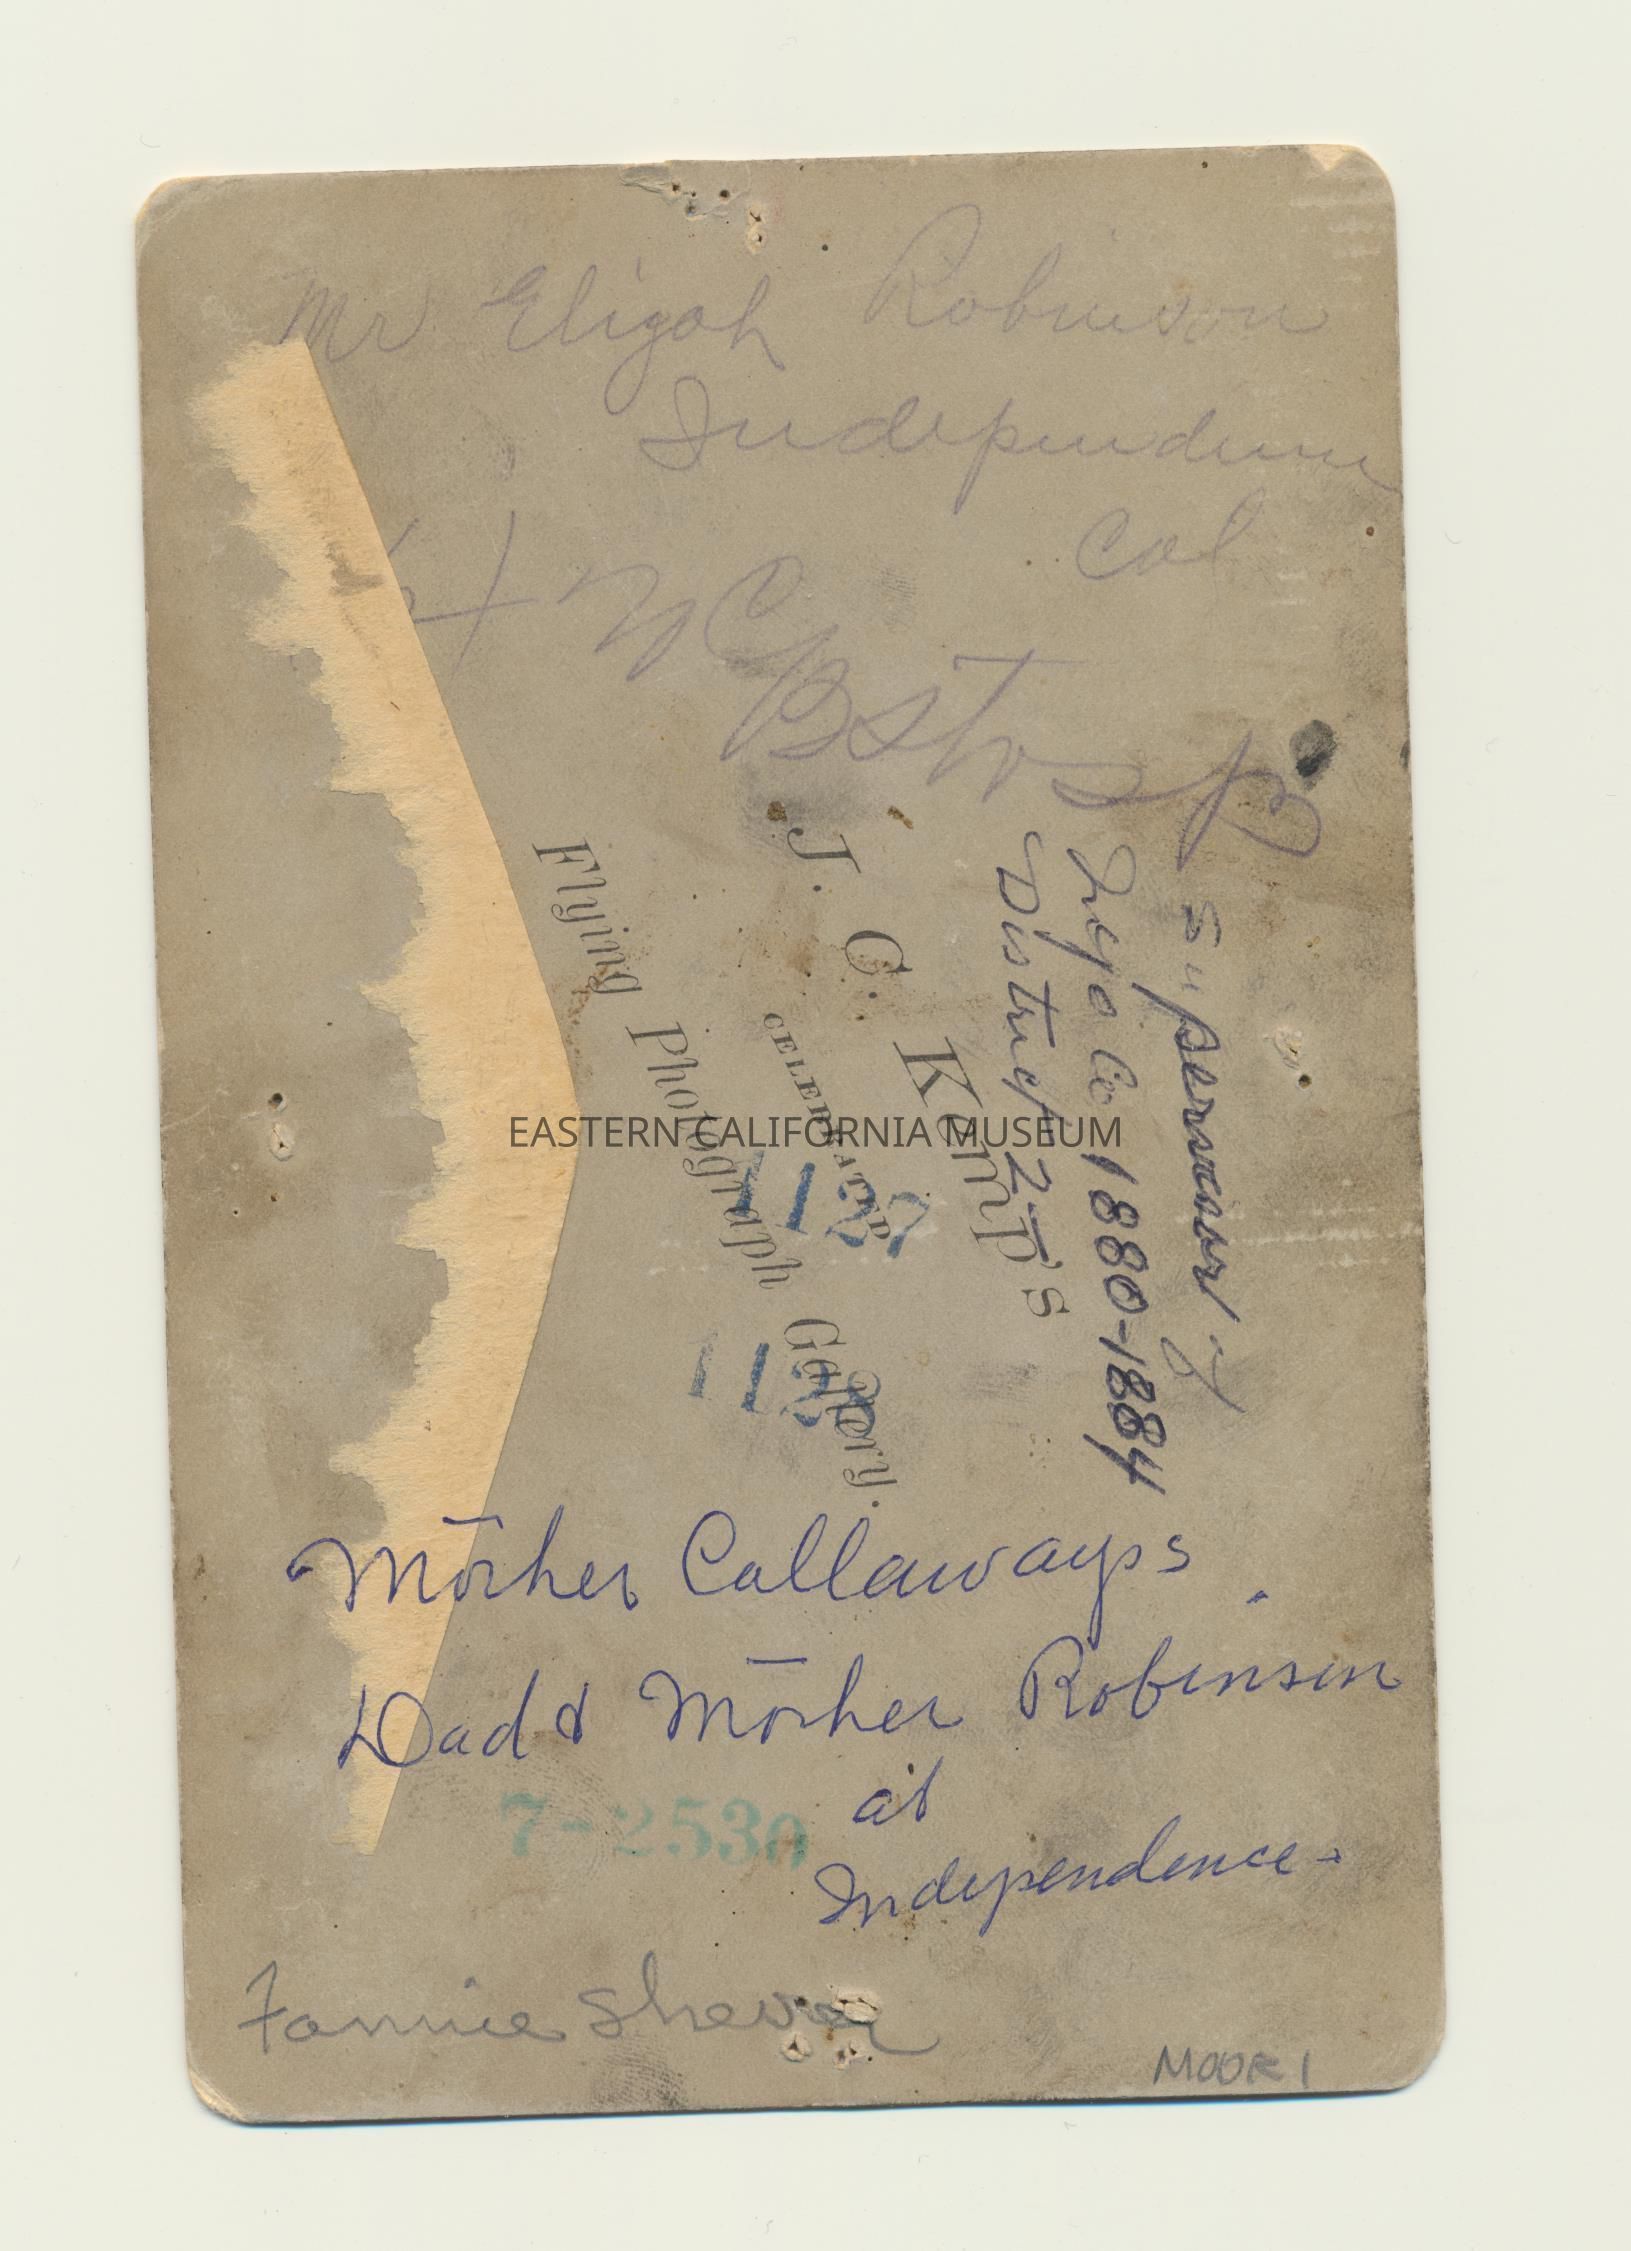 Mr Elijah Robinson
Independence
Cal
J. C. Kemp's
CELEBRATED
Flying Photograph Gallery.
Supervisor of
Inyo Co 1880-1884
District 2-
EASTERN CALIFORNIA MUSEUM
1127
1128
Mother Callaways
Dad & Mother Robinson
at
Independence-
7-2530
Fannie Shever
MOOR 1